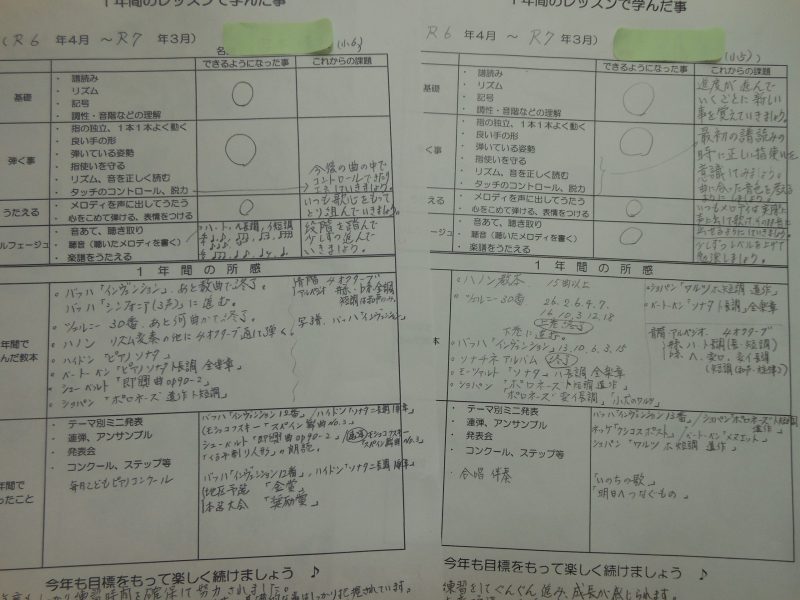 1年間のレッスンで学んだ事
(R6 年4月 ~ R7 年3月)
名
(小6)
できるようになった事
これからの課題
基礎
・ 譜読み
・ リズム
・ 記号
・ 調性・音階などの理解
弾く事
・ 指の独立、1本1本よく動く
・ 良い手の形
・ 弾いている姿勢
・ 指使いを守る
・ リズム、音を正しく読む
・ タッチのコントロール、脱力
今後の曲の中で
コントロールできたり
していきましょう。
うたえる
・ メロディを声に出してうたう
・ 心をこめて弾ける、表情をつける
いつも歌心をもって
とり組んでいきましょう。
ルフェージュ
・ 音あて、聴き取り
・ 聴音(聴いたメロディを書く)
・ 楽譜をうたえる
段階を踏んで
少しずつ進んで
いきましょう。
1 年 間 の 所 感
年間で
んだ教本
バッハ「インヴェンション」、あと数曲で終了。
バッハ「シンフォニア(3声)」に進む。
ツェルニー 30番、あと何曲かで終了。
ハノン リズム変奏の他に4オクターブ通して弾く。
ハイドン「ピアノソナタ」
ベートーベン「ピアノソナタ」ト長調 全楽章
シューベルト「即興曲op90-2」
ショパン「ポロネーズ」遺作ト短調
音階 4オクターブ
アルペジオ
年間で
ったこと
・ テーマ別ミニ発表
・ 連弾、アンサンブル
・ 発表会
・ コンクール、ステップ等
毎日こどもピアノコンクール
バッハ「インヴェンション12番」/ハイドン「ソナタ二長調 1楽章」
(モシュコフスキー「スペイン舞曲No.3」
シューベルト「即興曲op90-2」
「くるみ割り人形」の朗読。
バッハ「インヴェンション12番」、ハイドン「ソナタ二長調 1楽章」
地区予選「金賞」
本選大会「奨励賞」
今年も目標をもって楽しく続けましょう ♪
練習時間を確保して努力されました。
1年間のレッスンで学んだ事
R6 年4月 ~ R7 年3月)
(小5)
できるようになった事
これからの課題
基礎
・ 譜読み
・ リズム
・ 記号
・ 調性・音階などの理解
進度が進んで
いくごとに新しい
事を覚えていきましょう。
く事
・ 指の独立、1本1本よく動く
・ 良い手の形
・ 弾いている姿勢
・ 指使いを守る
・ リズム、音を正しく読む
・ タッチのコントロール、脱力
最初の譜読みの
時に正しい指使いを
意識してみましょう。
曲に合った音色を考える
ようにしましょう。
える
・ メロディを声に出してうたう
・ 心をこめて弾ける、表情をつける
いつもメロディは実際に
声に出して歌い、
出せるようにしていきましょう。
ージュ
・ 音あて、聴き取り
・ 聴音(聴いたメロディを書く)
・ 楽譜をうたえる
少しずつレベルを上げて
勉強しましょう。
1 年 間 の 所 感
本
ハノン教本 15曲以上
ツェルニー30番 26.2.6.4.7.
16.10.3.12.18
下巻に進む。
バッハ「インヴェンション」13.10.6.3.15
ソナチネ アルバム 終了
モーツァルト「ソナタ」ハ長調 全楽章
ショパン「ポロネーズト短調 遺作」
「ポロネーズ 変イ長調」「小犬のワルツ」
ショパン「ワルツ ホ短調 遺作」
ベートーベン「ソナタ ト長調」全楽章
音階 アルペジオ 4オクターブ
・ テーマ別ミニ発表
・ 連弾、アンサンブル
・ 発表会
・ コンクール、ステップ等
・ 合唱 伴奏
バッハ「インヴェンション13番」/ショパン「ポロネーズト短調
遺作」
ネッケ「クシコスポスト」/ベートーベン「メヌエット」
ショパン「ワルツ ホ短調 遺作」
「いのちの歌」
「明日へつなぐもの」
今年も目標をもって楽しく続けましょう ♪
練習をしてぐんぐん進み、成長が感じられます。